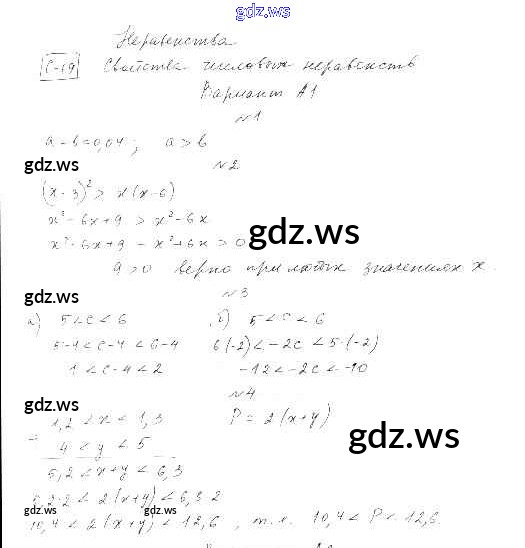 gdz.ws
Неравенства
С-19 Свойства числовых неравенств
Вариант А1
№1
a - b = 0,04; a > b
gdz.ws
№2
(x - 3)² > x(x - 6)
x² - 6x + 9 > x² - 6x
x² - 6x + 9 - x² + 6x > 0
gdz.ws
9 > 0 верно при любых значениях x.
gdz.ws
№3
а) 5 < c < 6 б) 5 < c < 6
5-4 < c-4 < 6-4 6·(-2) < -2c < 5·(-2)
1 < c-4 < 2 -12 < -2c < -10
№4
gdz.ws
1,2 < x < 1,3 P = 2(x+y)
+
4 < y < 5
gdz.ws
5,2 < x+y < 6,3
5,2·2 < 2(x+y) < 6,3·2
gdz.ws
10,4 < 2(x+y) < 12,6, т.е. 10,4 < P < 12,6.